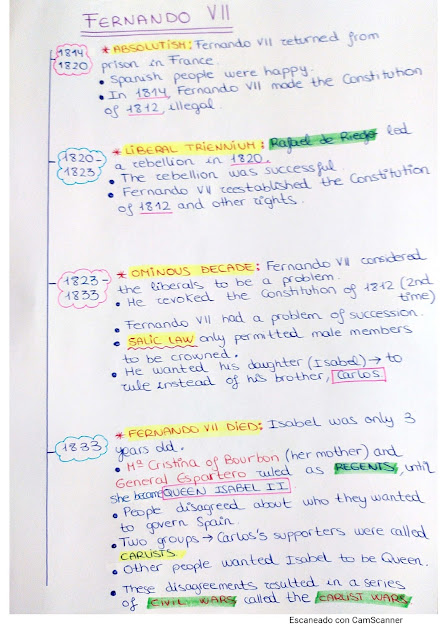 FERNANDO VII
1814
1820
* ABSOLUTISM: Fernando VII returned from
prison in France.
• Spanish people were happy.
• In 1814, Fernando VII made the Constitution
of 1812, illegal.
1820-
1823
* LIBERAL TRIENNIUM: Rafael de Riego led
a rebellion in 1820.
• The rebellion was successful.
• Fernando VII reestablished the Constitution
of 1812 and other rights.
1823-
1833
* OMINOUS DECADE: Fernando VII considered
the liberals to be a problem.
• He revoked the Constitution of 1812 (2nd
time)
• Fernando VII had a problem of succession.
• SALIC LAW only permitted male members
to be crowned.
• He wanted his daughter (Isabel) → to
rule instead of his brother, Carlos
1833
* FERNANDO VII DIED: Isabel was only 3
years old.
• Mª Cristina of Bourbon (her mother) and
General Espartero ruled as REGENTS, until
she became QUEEN ISABEL II.
• People disagreed about who they wanted
to govern Spain.
• Two groups → Carlos's supporters were called
CARLISTS.
• Other people wanted Isabel to be Queen.
• These disagreements resulted in a series
of CIVIL WARS called the CARLIST WARS
Escaneado con CamScanner